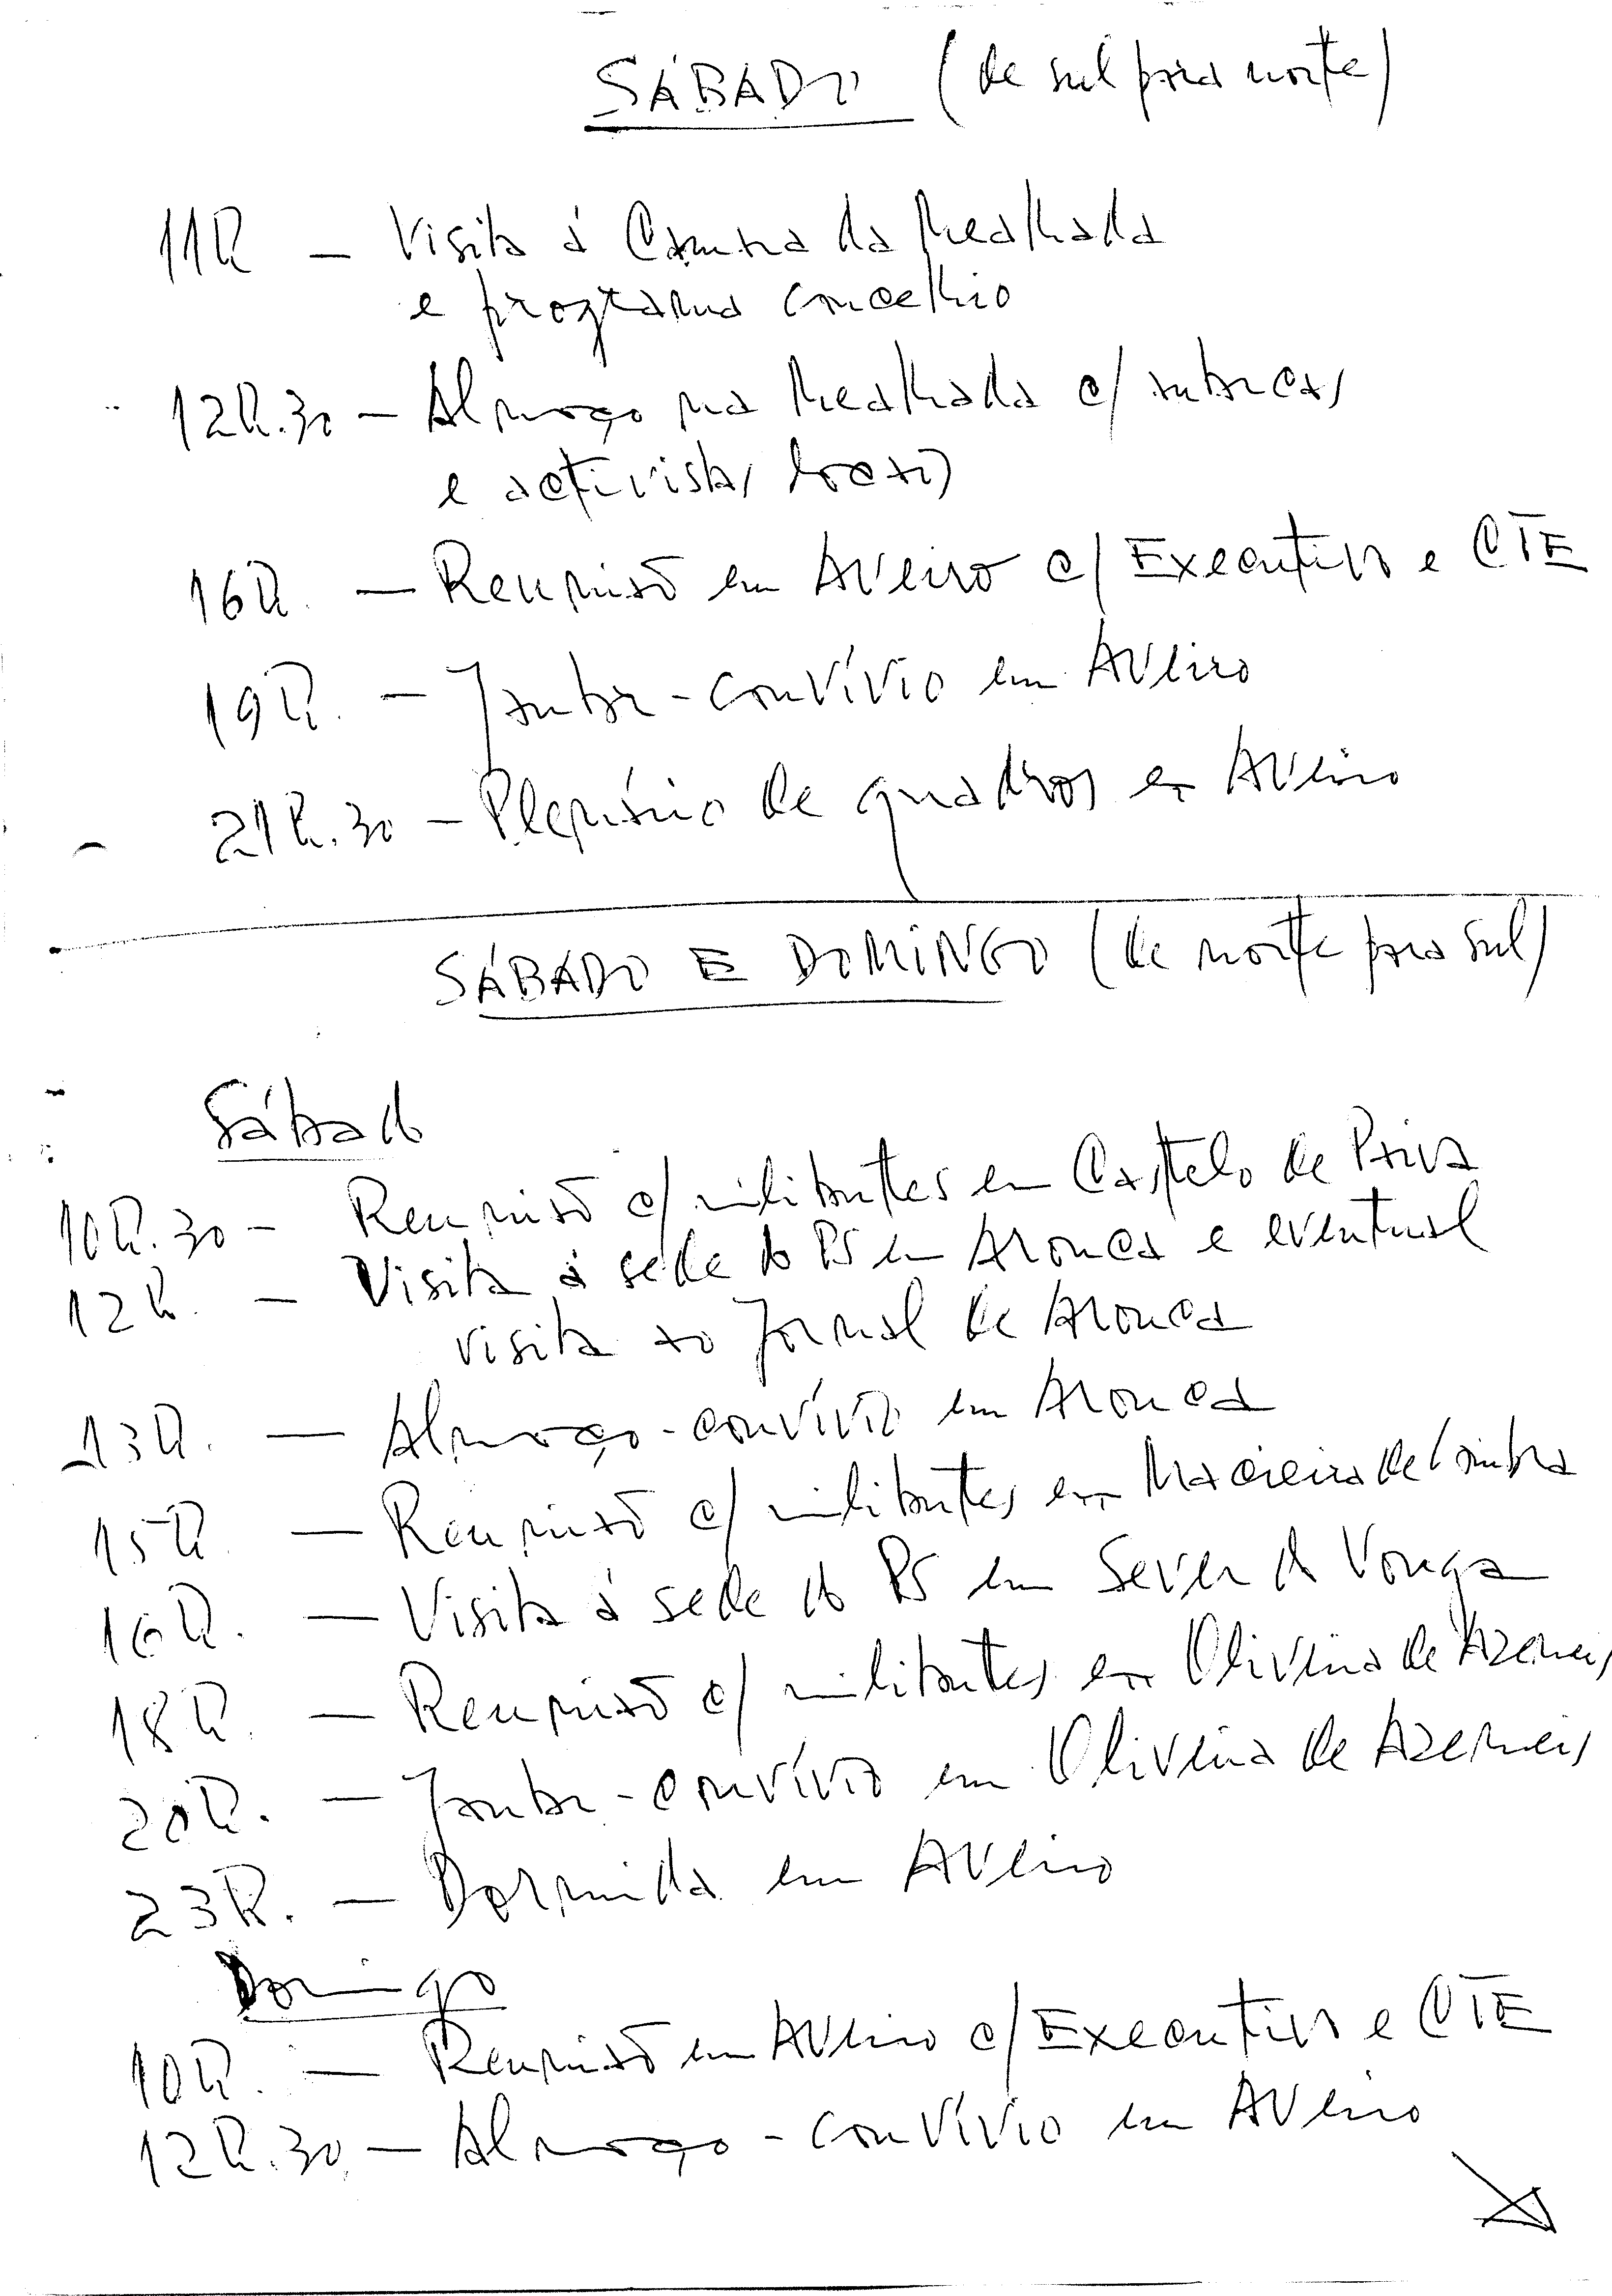 SÁBADO (de sul para norte)
11h — Visita à Câmara da Mealhada
e programa concelhio
12h.30 — Almoço na Mealhada c/ autarcas
e activistas locais
16h. — Reunião em Aveiro c/ Executivo e CTE
19h. — Jantar-convívio em Aveiro
21h.30 — Plenário de quadros em Aveiro
SÁBADO E DOMINGO (de norte para sul)
Sábado
10h.30 — Reunião c/ militantes em Castelo de Paiva
12h. — Visita à sede do PS em Arouca e eventual
visita ao Jornal de Arouca
13h. — Almoço-convívio em Arouca
15h — Reunião c/ militantes em Macieira de Cambra
16h. — Visita à sede do PS em Sever do Vouga
18h. — Reunião c/ militantes em Oliveira de Azemeis
20h. — Jantar-convívio em Oliveira de Azemeis
23h. — Dormida em Aveiro
Domingo
10h. — Reunião em Aveiro c/ Executivo e CTE
12h.30 — Almoço-convívio em Aveiro